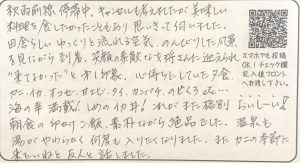 秋雨前線、停滞中。キャンセルも考えたが美味しい
料理を食したかったこともあり思いきって伺いました。
田舎らしい ゆっくりと流れる空気、のんびりした風景
を見ながら到着。笑顔の素敵な女将さんに迎えられ
"来てよかった"と第一印象。心待ちにしていた夕食
カニ、イカ、ホッセ、甘えび、タイ、カンパチ、のどぐろ etc…
海の幸満載!しめのカニ丼!これがまた格別 おいしーい!
朝食の卵かけご飯、素朴ながら絶品でした。温泉も
湯がやわらかく何度も入りたくなりました。またカニの季節に
来たいねと友人と話しました。
スマホでも投稿
OK!チェック欄
記入後フロント
へお渡し下さい。